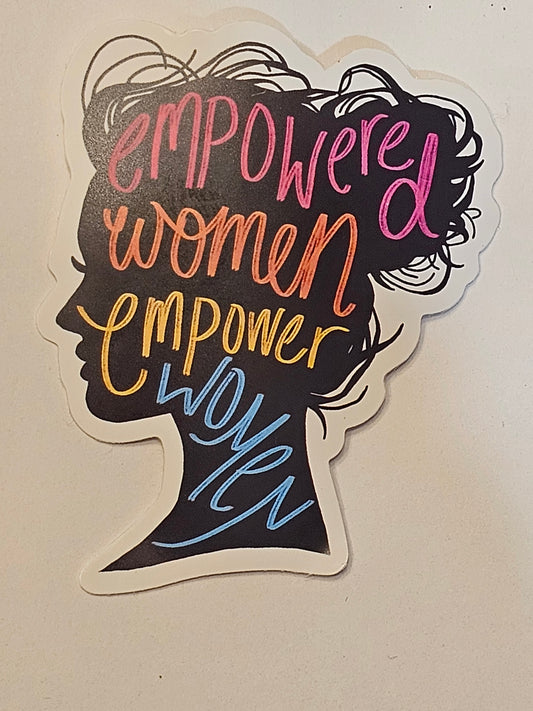 empowered
women
empower
women